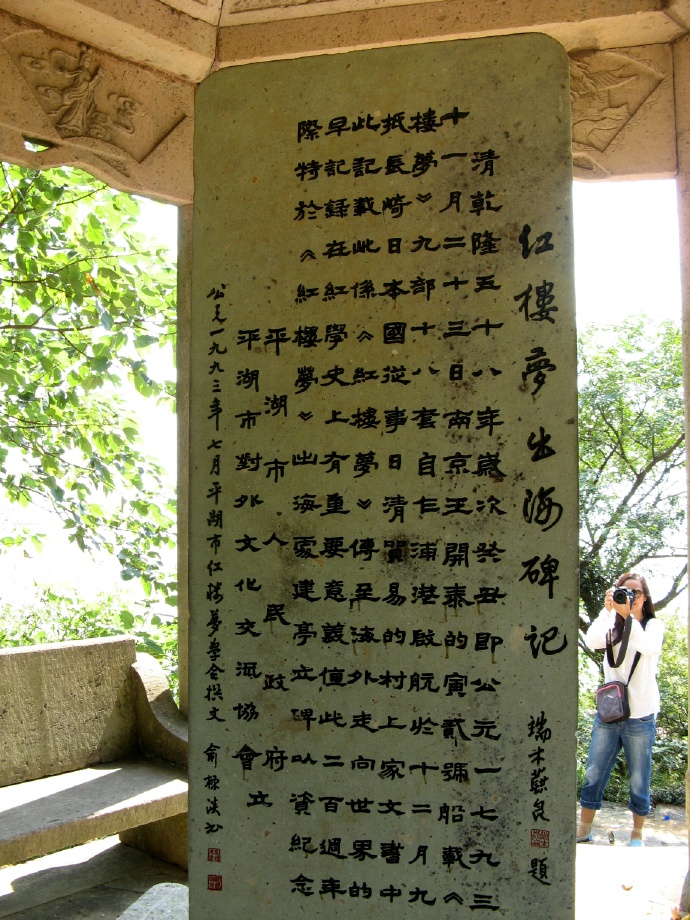 红樓夢出海碑記
端木蕻良 題
清乾隆五十八年歲次癸丑即公元一七九三
十一月二十三日南京王開泰的寅貳號船載《
樓夢》九部十八套自乍浦港啟航於十二月九
抵長崎日本國從事日清貿易的村上家文書中
此記載此係《紅樓夢》傳至海外走向世界的
早記錄在紅學史上有重要意義值此二百週年
際特於《紅樓夢》出海處建亭立碑以資紀念
平湖市人民政府
平湖市對外文化交流協會 立
公元一九九三年七月平湖市红楼夢學会撰文